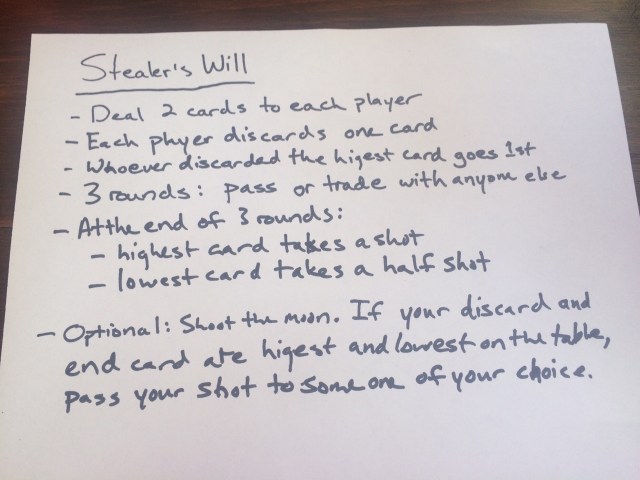 Stealer's Will
- Deal 2 cards to each player
- Each player discards one card
- Whoever discarded the higest card goes 1st
- 3 rounds: pass or trade with anyone else
- At the end of 3 rounds:
- highest card takes a shot
- lowest card takes a half shot
- Optional: Shoot the moon. If your discard and
end card are higest and lowest on the table,
pass your shot to someone of your choice.